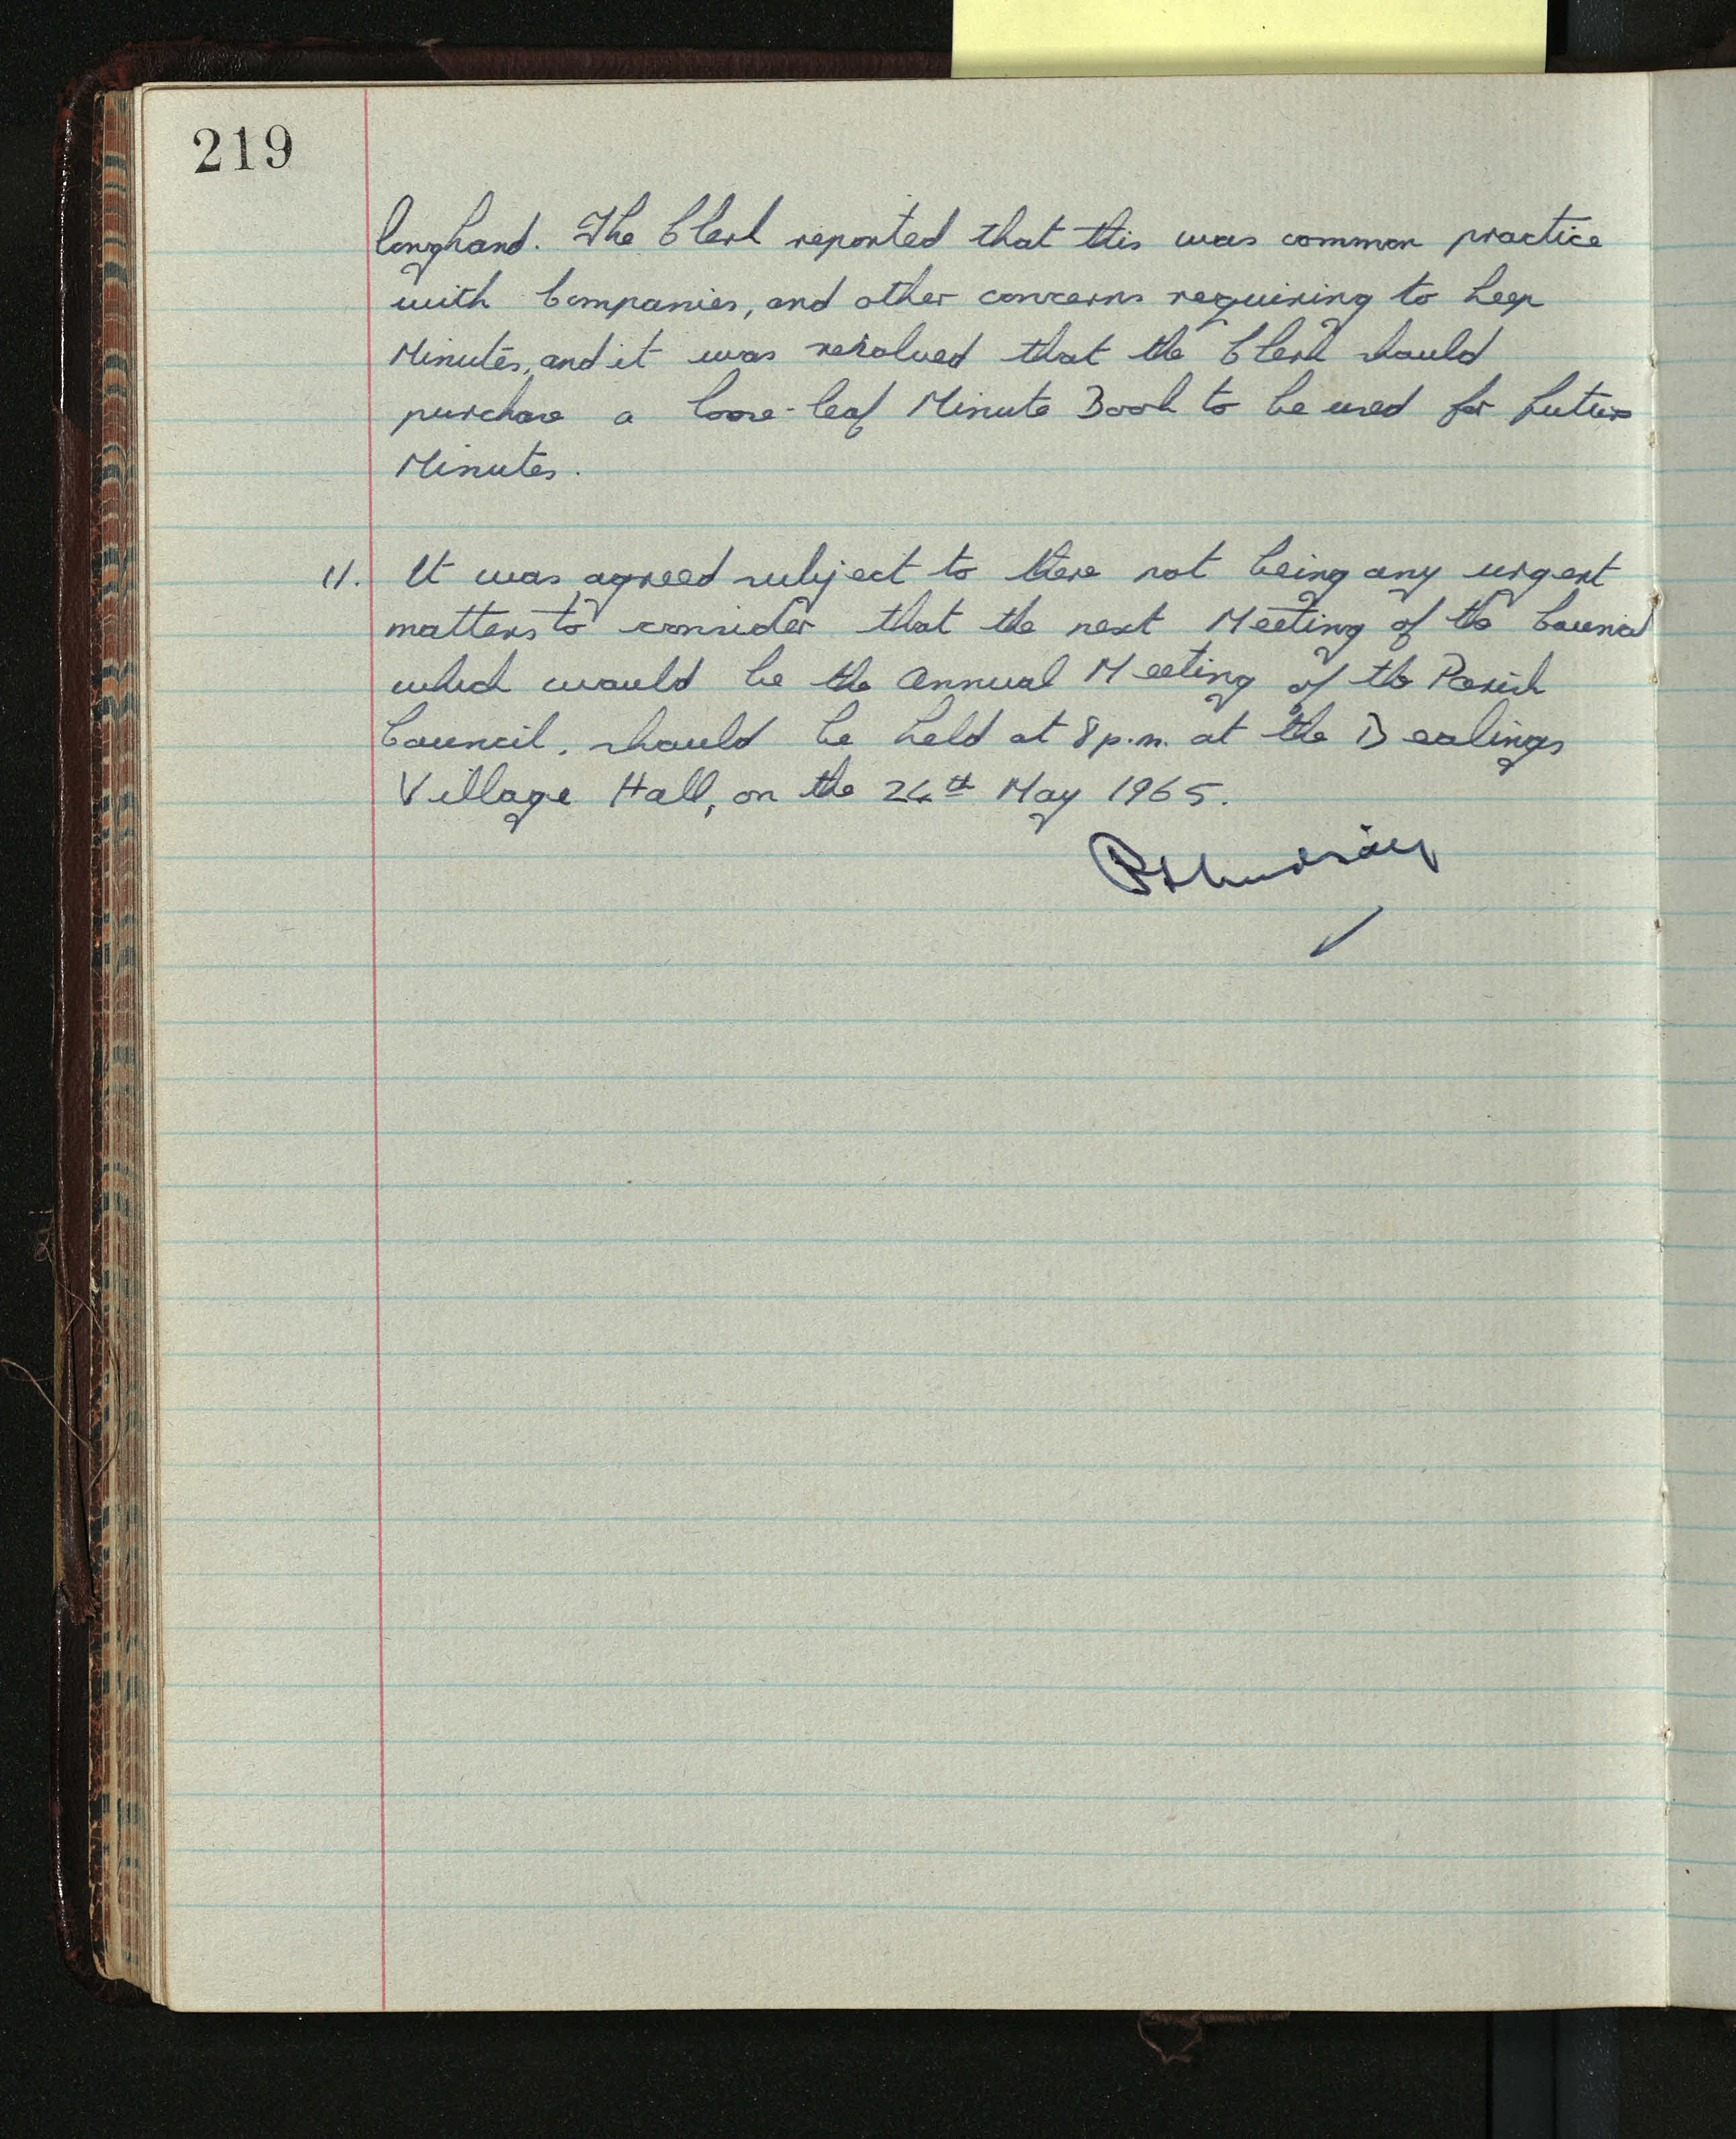 219
longhand. The Clerk reported that this was common practice
with Companies, and other concerns requiring to keep
Minutes, and it was resolved that the Clerk should
purchase a loose-leaf Minute Book to be used for future
Minutes.
11. It was agreed subject to there not being any urgent
matters to consider that the next Meeting of the Council
which would be the Annual Meeting of the Parish
Council, should be held at 8 p.m. at the Bealings
Village Hall, on the 24th May 1965.